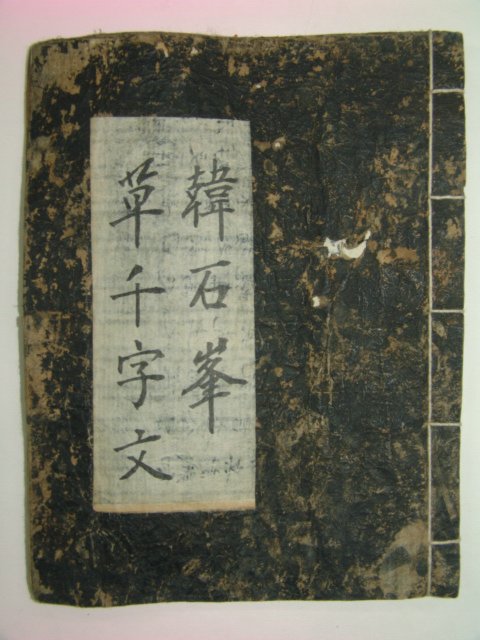 韓石峯
草千字文